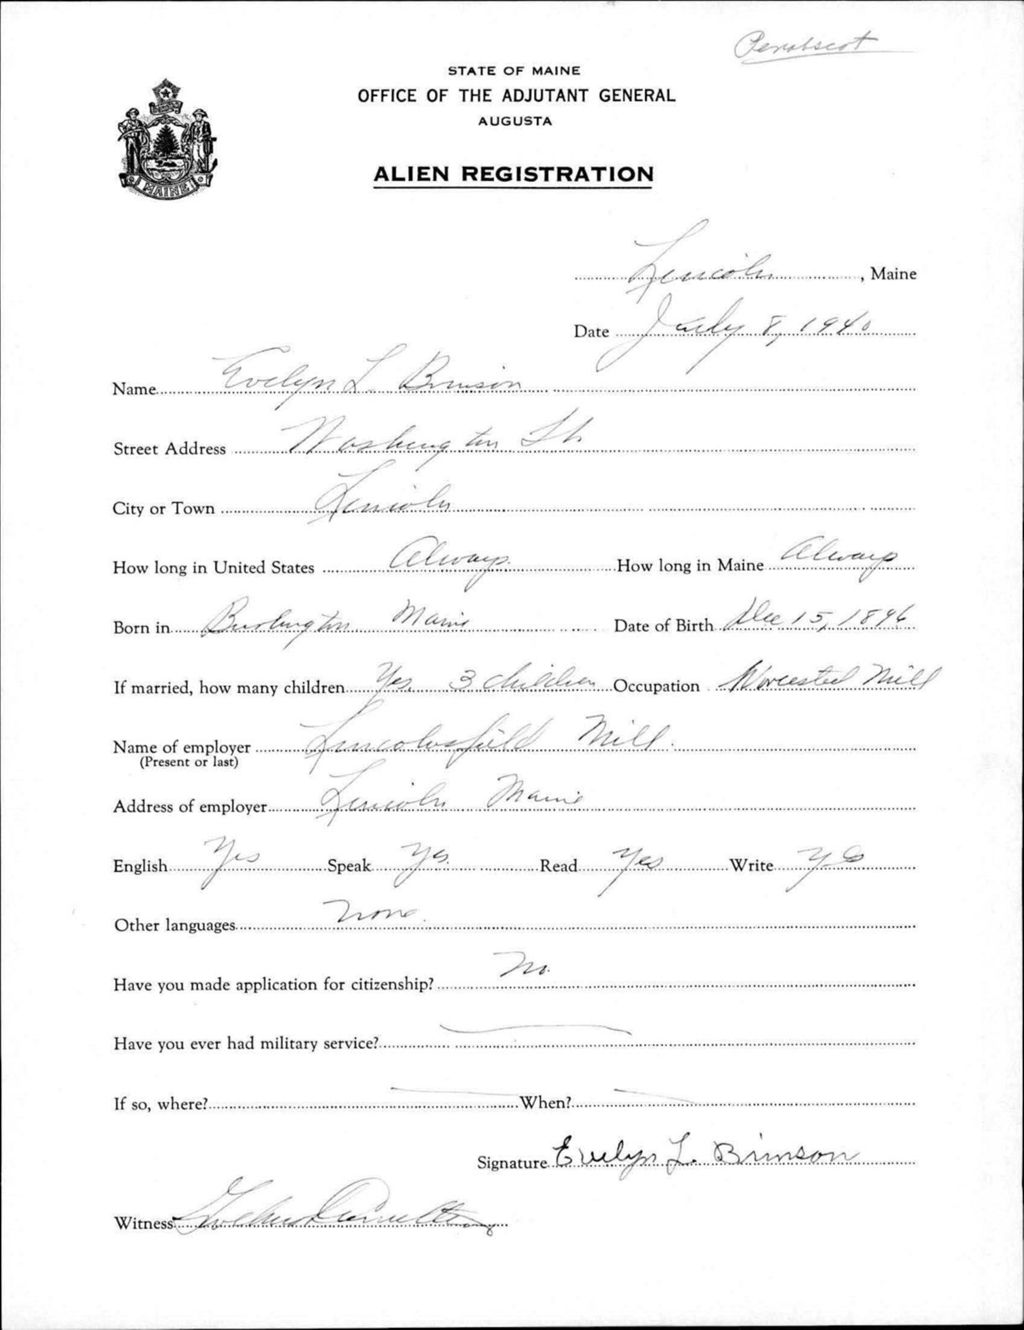 Penobscot
STATE OF MAINE
OFFICE OF THE ADJUTANT GENERAL
AUGUSTA
ALIEN REGISTRATION
MAINE
Lincoln, Maine
Date July 8, 1940
Name Evelyn L. Brinson
Street Address Washington St
City or Town Lincoln
How long in United States Always. How long in Maine Always
Born in Burlington Maine Date of Birth Dec 15, 1896
If married, how many children Yes, 3 children Occupation Worcested Mill
Name of employer Lincolnsfield Mill.
(Present or last)
Address of employer Lincoln Maine
English Yes Speak Yes. Read Yes Write Yes
Other languages None.
Have you made application for citizenship? No.
Have you ever had military service?
If so, where? When?
Signature Evelyn L. Brinson
Witness